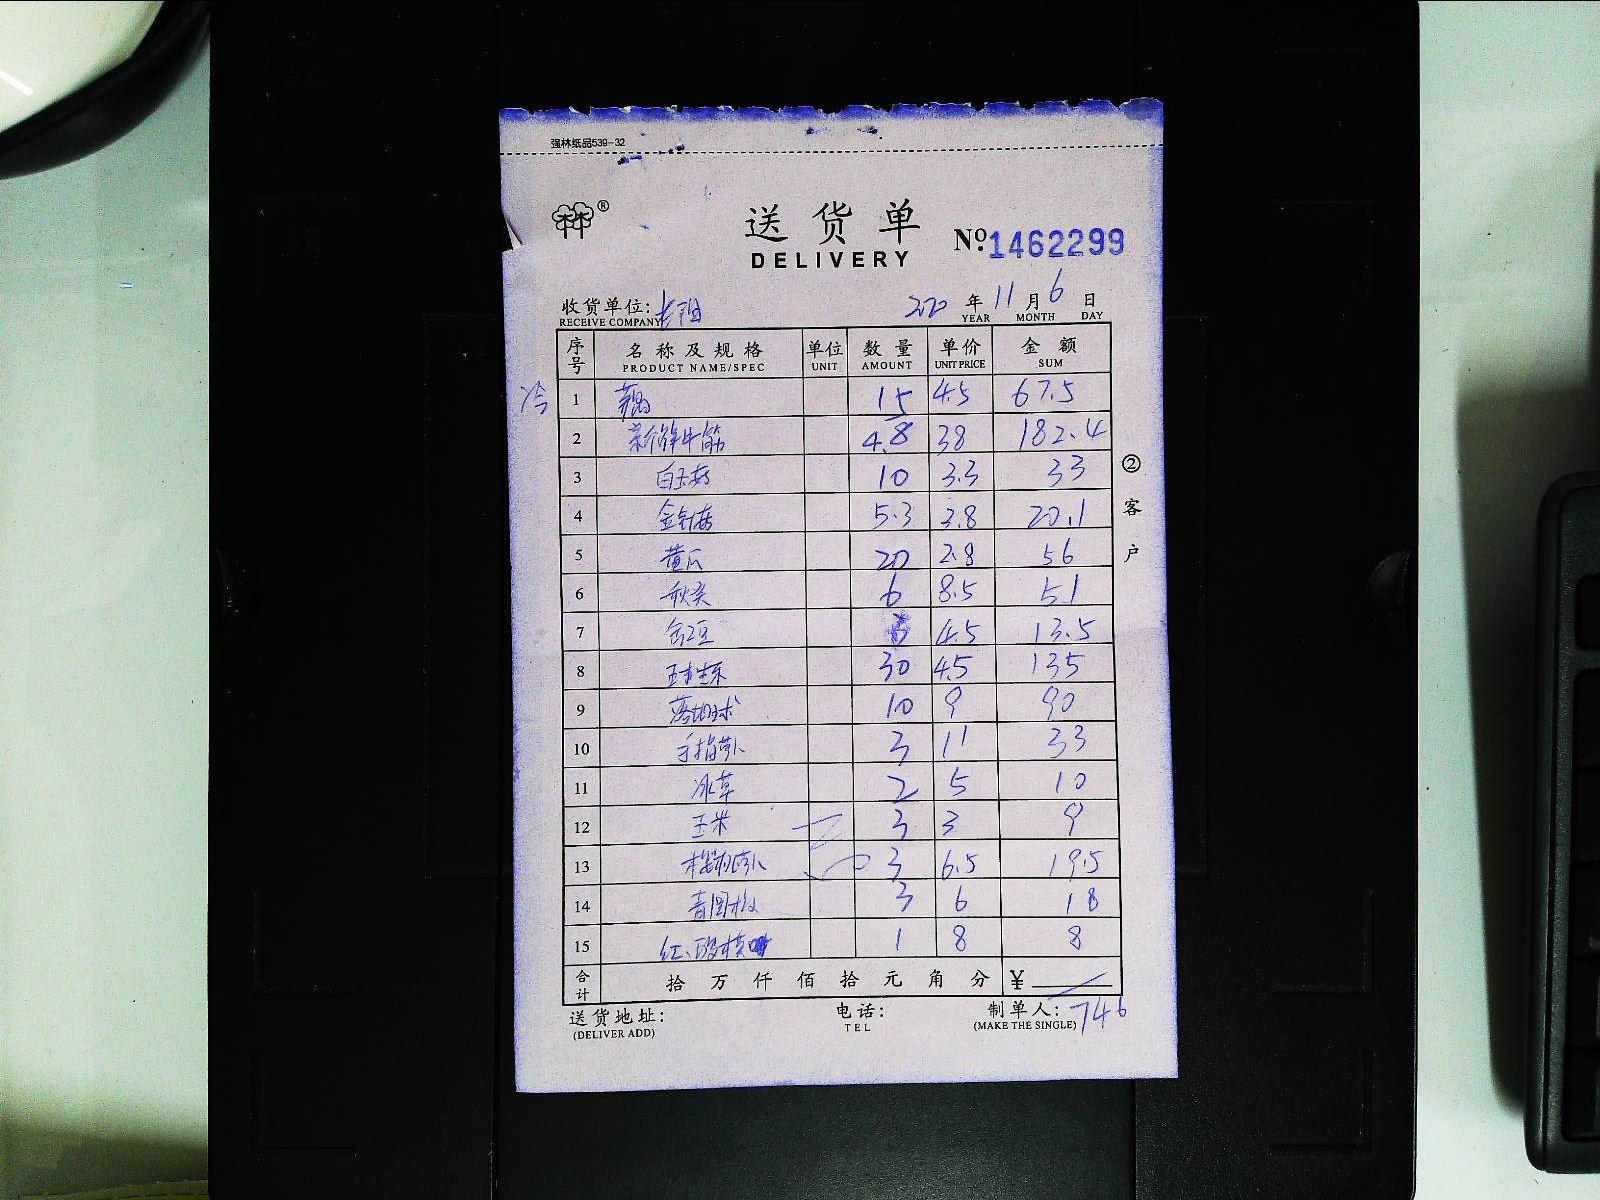 强林纸品539-32
®
送货单
DELIVERY
№ 1462299
收货单位:
RECEIVE COMPANY
2020 年 11 月 6 日
YEAR MONTH DAY
序号 名称及规格 单位 数量 单价 金额
PRODUCT NAME/SPEC UNIT AMOUNT UNIT PRICE SUM
冷 1 藕 15 4.5 67.5
2 新鲜牛筋 4.8 38 182.4
3 白玉菇 10 3.3 33
4 金针菇 5.3 3.8 20.1
5 黄瓜 20 2.8 56
6 秋葵 6 8.5 51
7 3 4.5 13.5
8 30 4.5 135
9 10 9 90
10 手指萝卜 3 11 33
11 冰草 2 5 10
12 玉米 3 3 9
13 樱桃萝卜 3 6.5 19.5
14 青圆椒 3 6 18
15 1 8 8
合计 拾 万 仟 佰 拾 元 角 分 ¥
746
送货地址: 电话: 制单人:
(DELIVER ADD) TEL (MAKE THE SINGLE)
② 客户